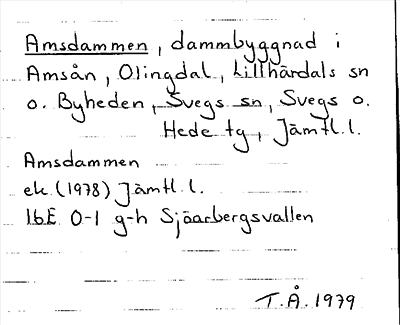 Amsdammen, dammbyggnad i
Amsån, Olingdal, Lillhärdals sn
o. Byheden, Svegs sn, Svegs o.
Hede tg, Jämtl. l.
Amsdammen
ek. (1978) Jämtl. l.
16E 0-1 g-h Sjöarbergsvallen
T.Å. 1979